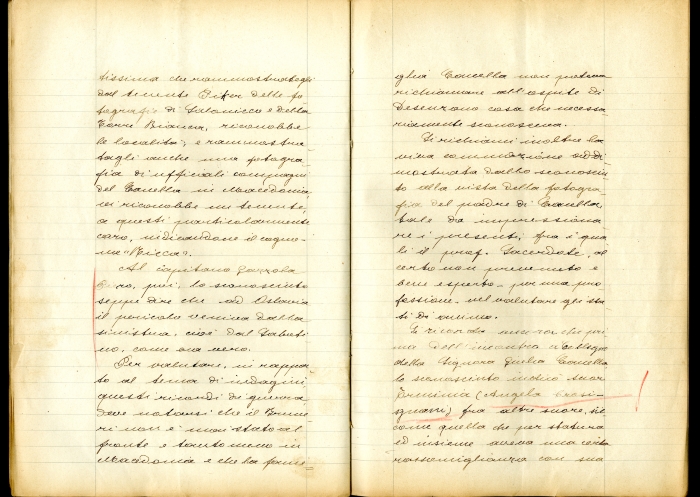 tissima che rammostratogli
dal tenente Piter delle fo
tografie di Salonicco e della
Torre Bianca, riconobbe
le località; e rammostra
tagli anche una fotogra
fia di ufficiali compagni
del Canella in Macedonia
vi riconobbe un tenente,
a questi particolarmente
caro, indicandone il cogno-
me
Al capitano
poi, lo sconosciuto
seppe dire che ad Oslavia
il pericolo veniva dalla
sinistra, cioè dal Saboti
no, come era vero.
Per valutare, in rappor
to al tema di indagini
questi ricordi di guerra,
deve notarsi che il Brune
ri non è mai stato al
fronte e tanto meno in
Macedonia e che la fami-
glia Canella non poteva
richiamare all'ospite di
Desenzano cosa che necessa
riamente sconosceva.
Si richiami inoltre la
viva commozione addi
mostrata dallo sconosciu
to alla vista della fotogra
fia del padre di Canella,
tale da impressiona
re i presenti, fra i qua
li il prof. Sacerdote, al
certo non prevenuto e
bene esperto, per sua pro
fessione, nel valutare gli sta
ti di animo.
Si ricorda ancora che pri
ma dell'incontro a Collegno
della Signora Giulia Canella
lo sconosciuto indicò suor
Erminia (Angela
) fra altre suore, sic
come quella che per statura
ed insieme aveva una certa
rassomiglianza con sua